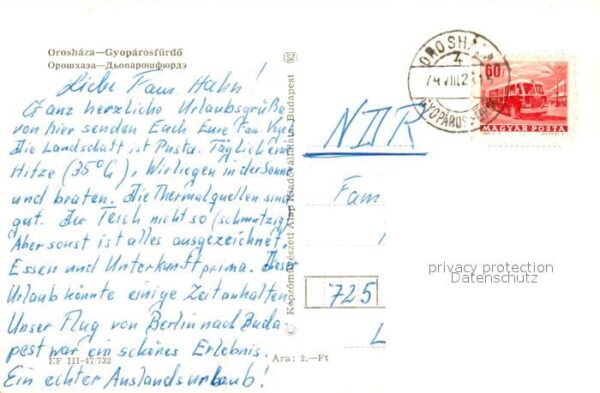 Orosháza—Gyopárosfürdő
Орошхаза—Дьопарошфюрдэ
Liebe Fam Hahn!
Ganz herzliche Urlaubsgrüße
von hier senden Euch Eure Fam.
Die Landschaft ist Pusta. Täglich eine
Hitze (35°C), Wir liegen in der Sonne
und braten. Die Thermalquellen sind
gut. Der Teich nicht so (schmutzig)
Aber sonst ist alles ausgezeichnet,
Essen und Unterkunft prima. Dieser
Urlaub könnte einige Zeit anhalten
Unser Flug von Berlin nach Buda
pest war ein schönes Erlebnis.
EF III-47/732
Ára: 2,—Ft
Ein echter Auslandsurlaub!
© Képzőművészeti Alap Kiadóvállalata, Budapest
OROSHÁZA
4
GYOPÁROSFÜRDŐ
60f
MAGYAR POSTA
NDR
Fam
725
L
privacy protection
Datenschutz